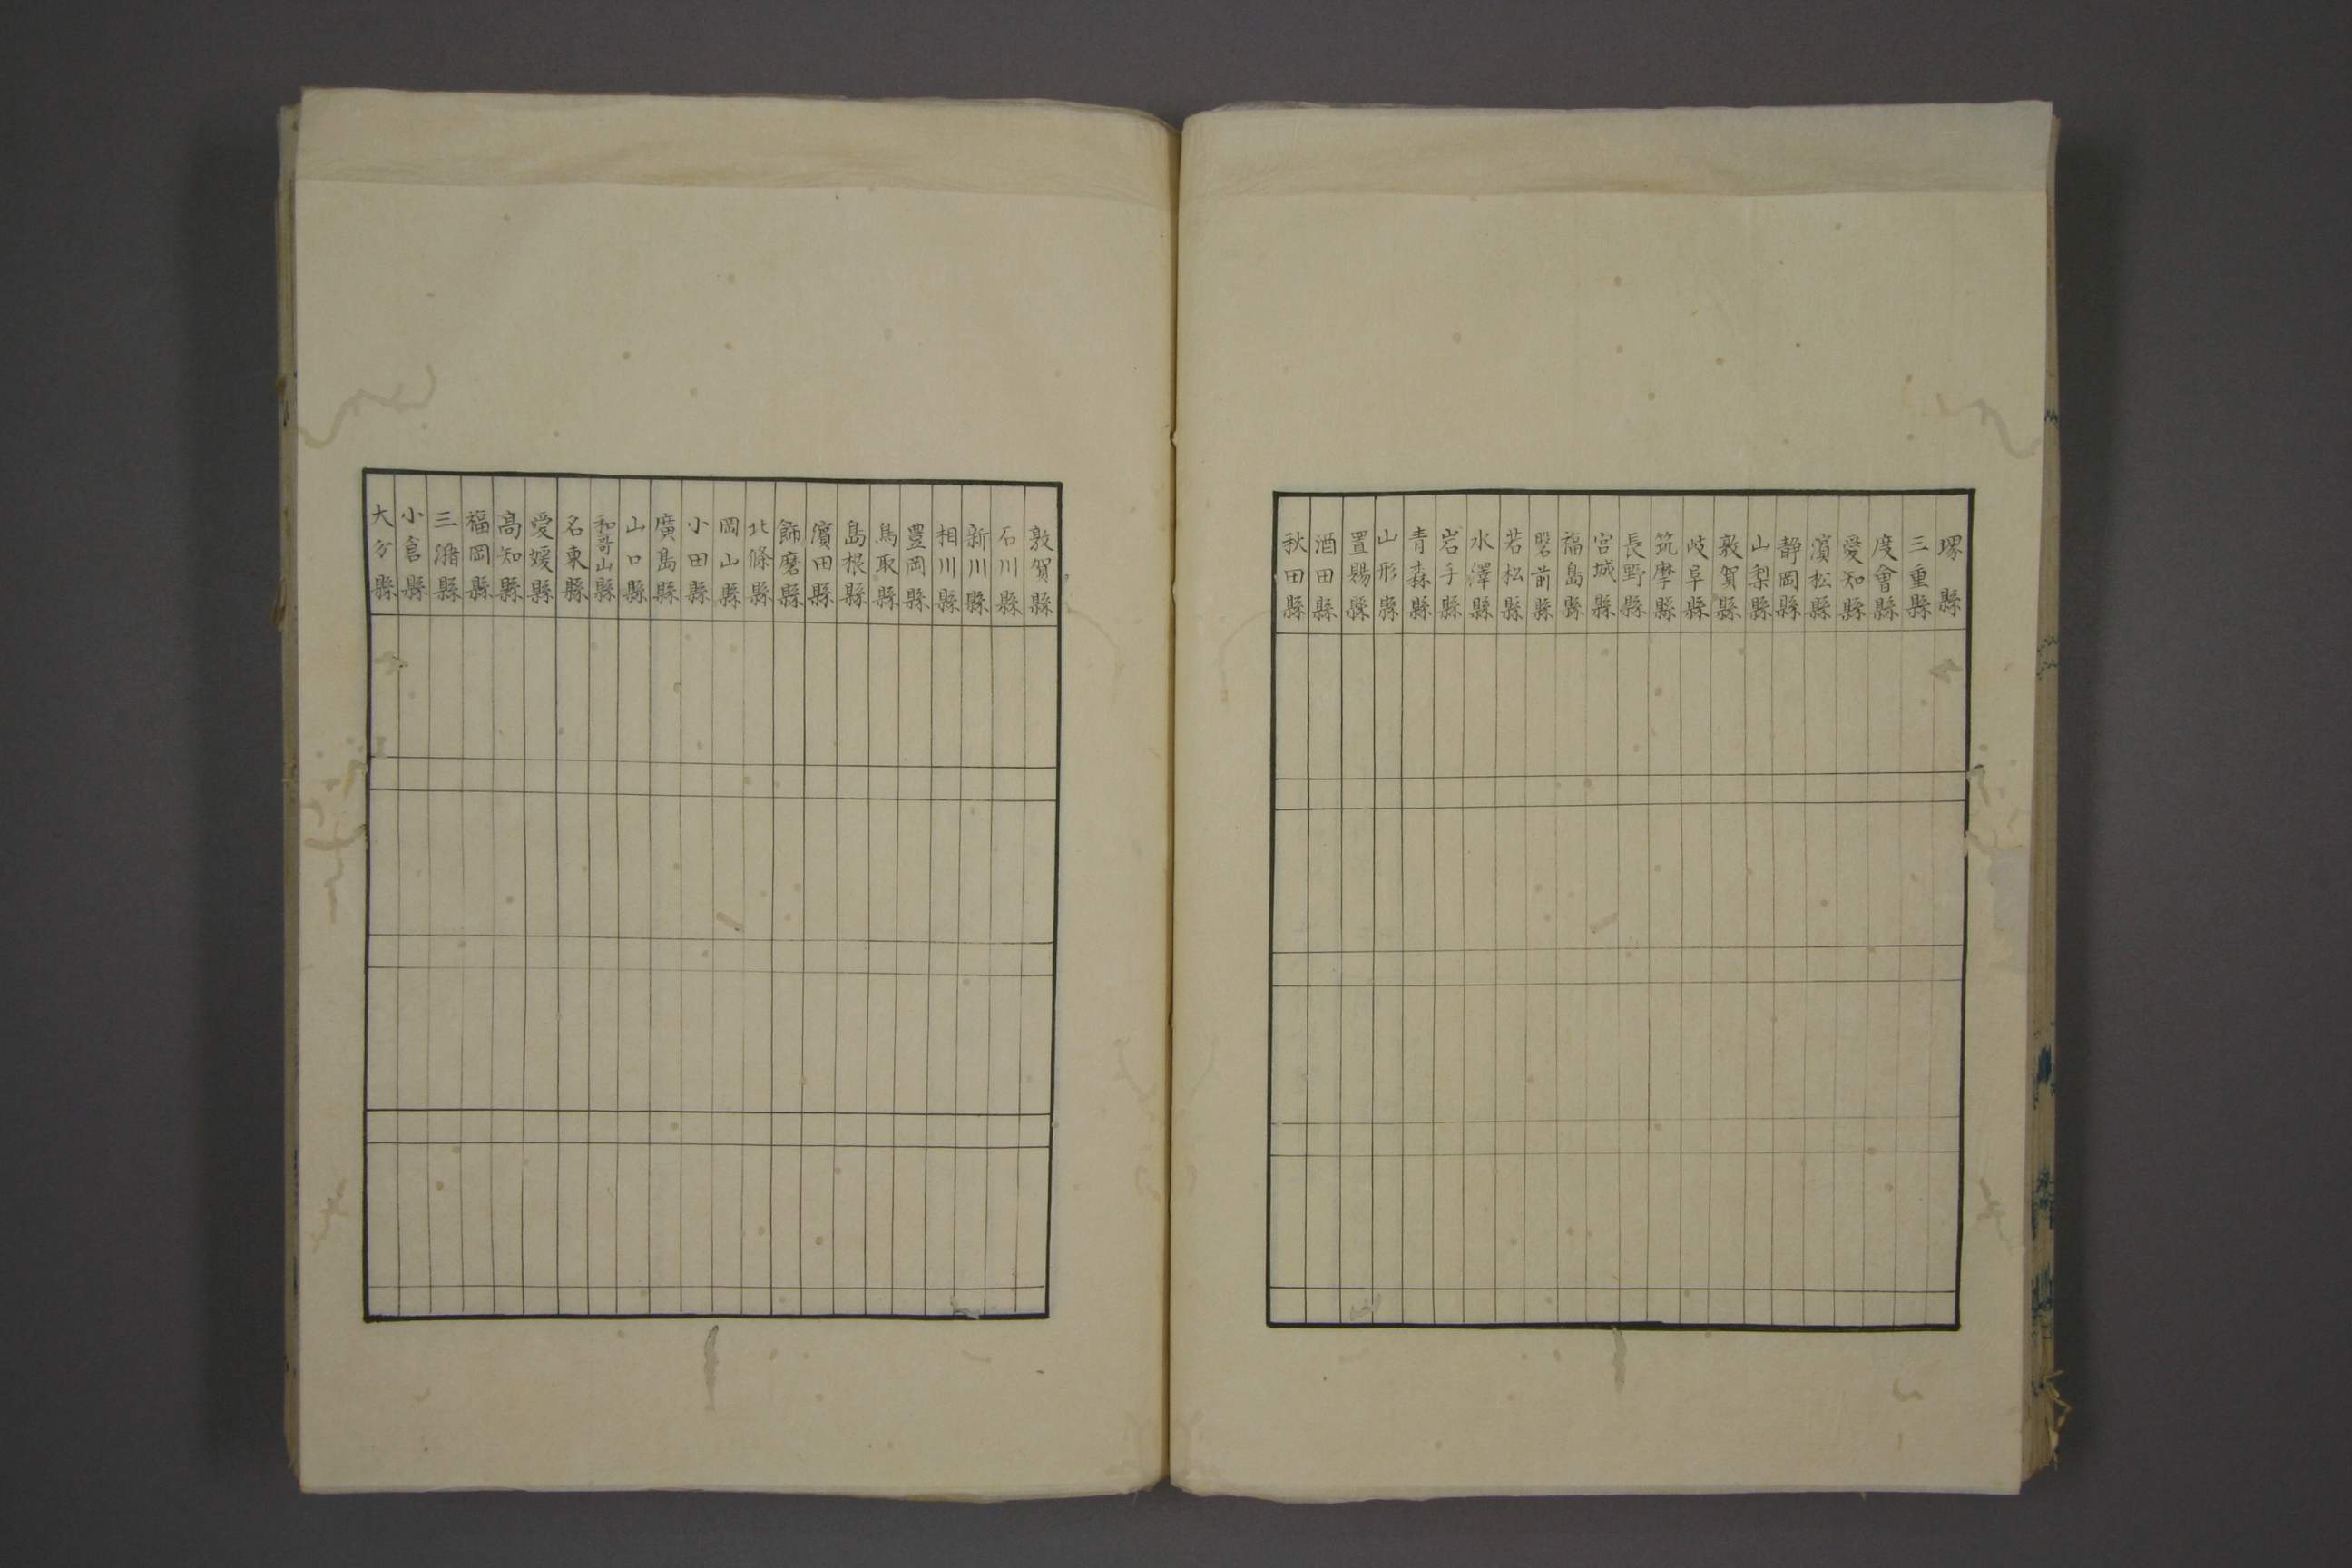 堺縣
三重縣
度會縣
愛知縣
濵松縣
静岡縣
山梨縣
敦賀縣
岐阜縣
筑摩縣
長野縣
宮城縣
福島縣
磐前縣
若松縣
水澤縣
岩手縣
青森縣
山形縣
置賜縣
酒田縣
秋田縣
敦賀縣
石川縣
新川縣
相川縣
豊岡縣
鳥取縣
島根縣
濵田縣
飾磨縣
北條縣
岡山縣
小田縣
廣島縣
山口縣
和哥山縣
名東縣
愛媛縣
高知縣
福岡縣
三潴縣
小倉縣
大分縣